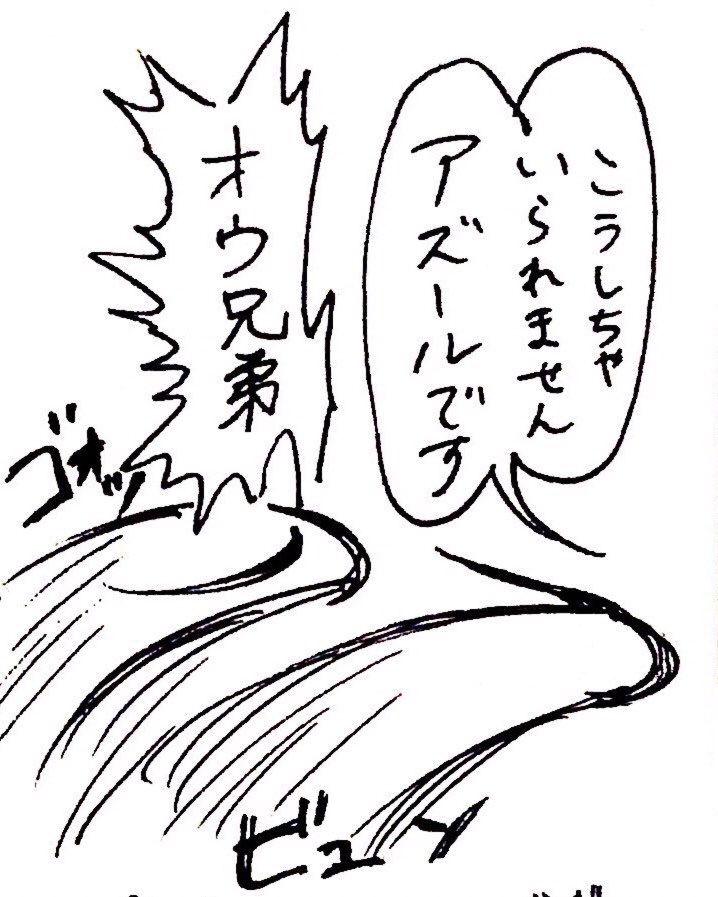 こうしちゃ
いられません
アズールです
オウ兄弟
ゴオッ
ビューン